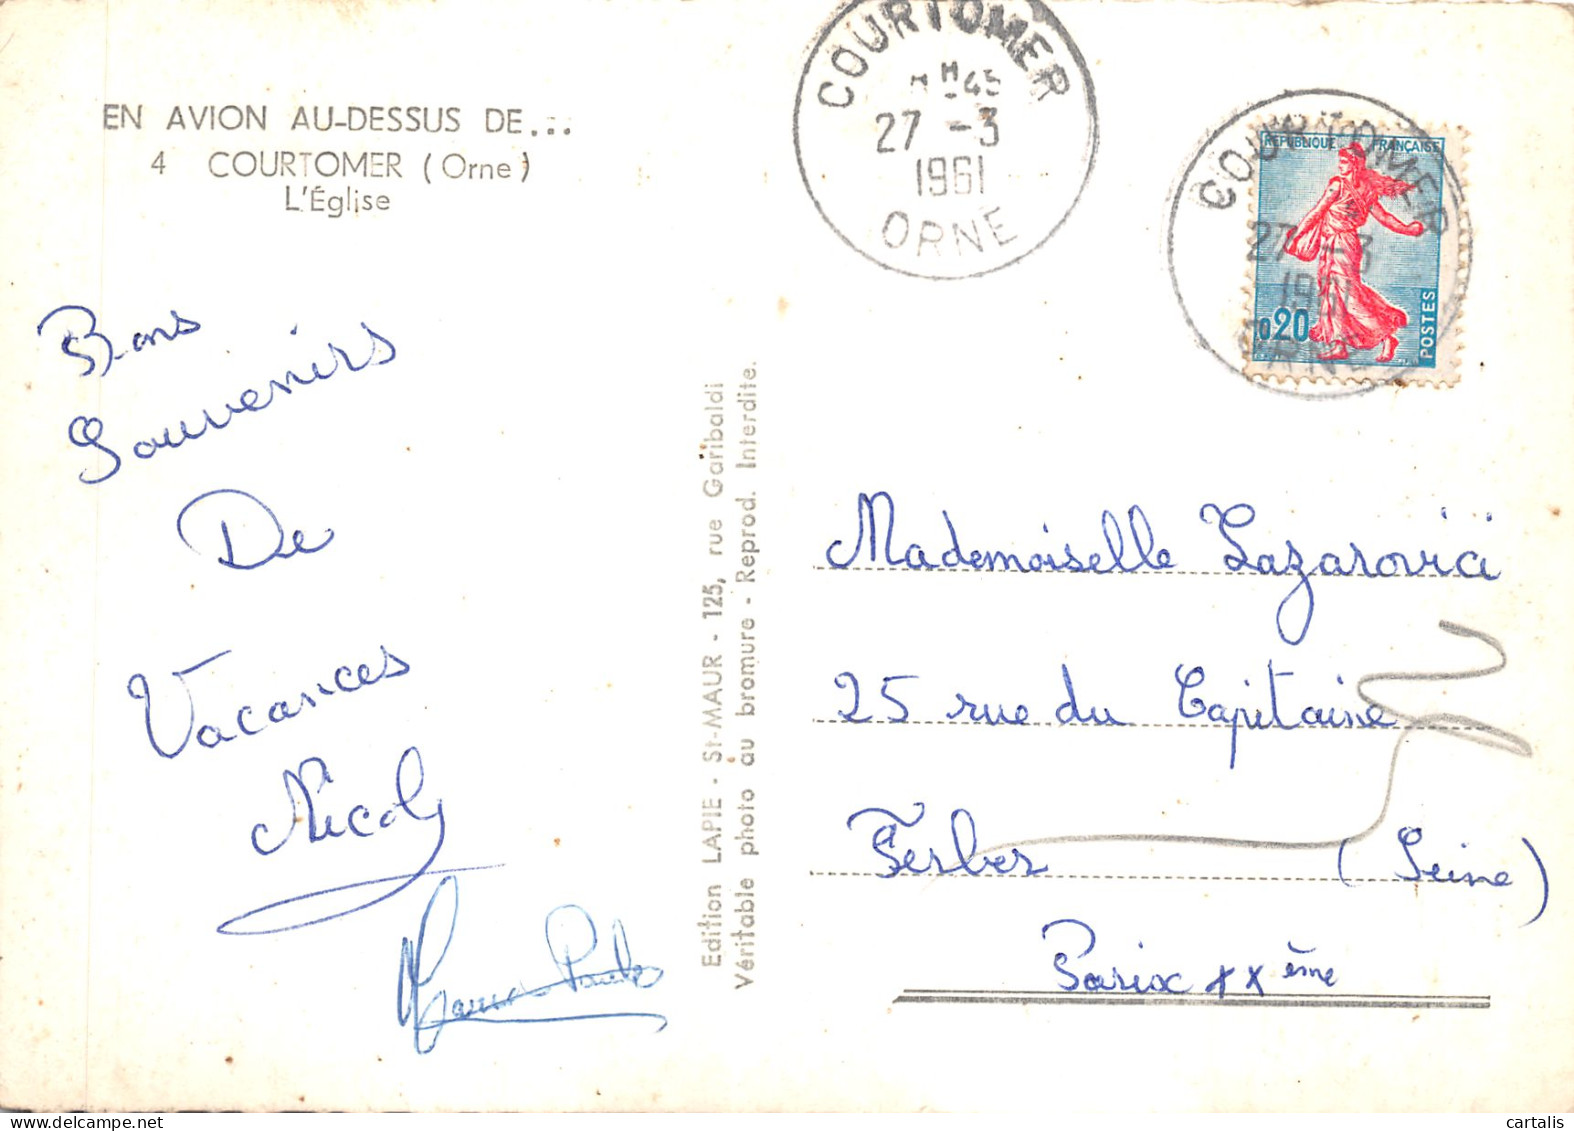 EN AVION AU-DESSUS DE...
4 COURTOMER (Orne)
L'Église
Bons
Souvenirs
De
Vacances
Nicole
Edition LAPIE - St-MAUR - 125, rue Garibaldi
Véritable photo au bromure - Reprod. Interdite.
COURTOMER
27 -3
1961
ORNE
COURTOMER
27 -3
1961
ORNE
REPUBLIQUE FRANÇAISE
0,20
POSTES
Mademoiselle Lazarovici
25 rue du Capitaine
Ferber (Seine)
Paris XXème
cartalis